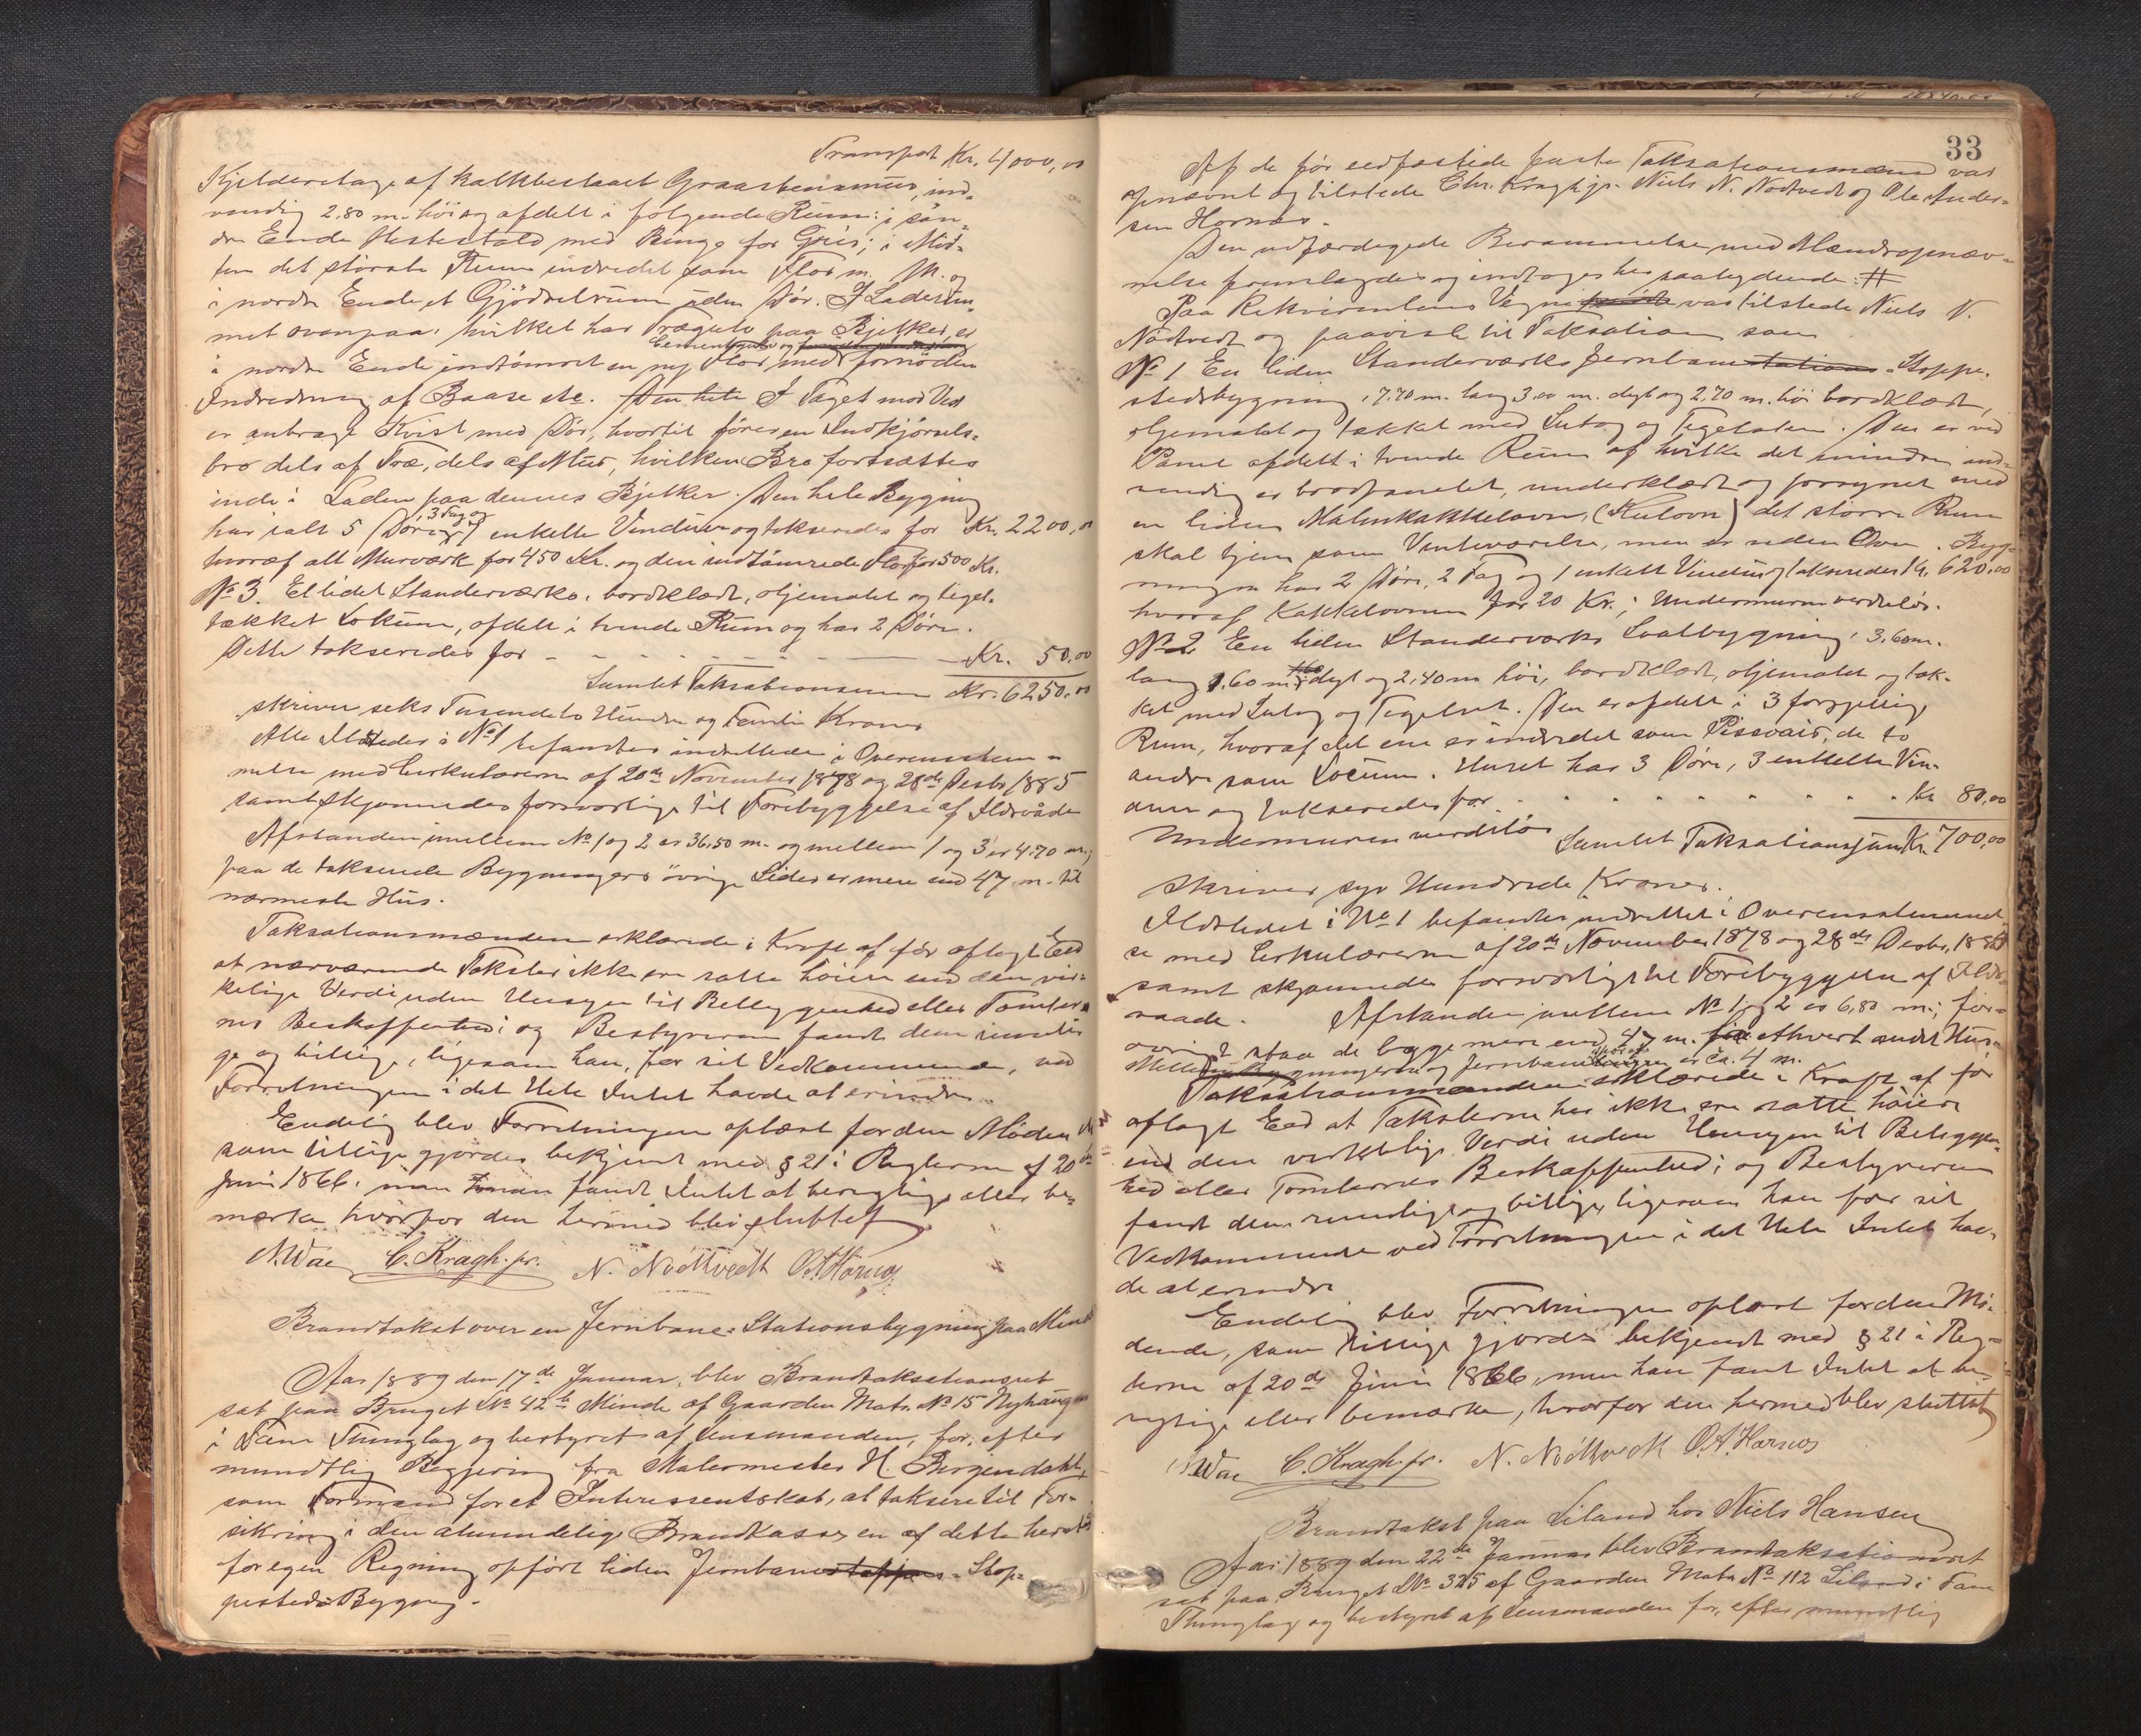 Transport Kr. 4000,00
Kjelderetage af kalkbestaaet Graastensmur, ind-
vendig 2,80 m. höi og afdelt i følgende Rum: i søn-
dre Ende Hestestald med Binge for Gris; i Mid-
ten det største Rum indredet som Flor m. M. og
i nordre Ende et Gjödselrum uden Dör. I Laderum-
met ovenpaa, hvilket har Trægulv paa Bjelker, er
Cementgulv og
i nordre Ende indtömret en ny Flor med fornöden
Indredning af Baase etc. Den hele I Taget mod Vest
er anbragt Kvist med Dör, hvortil förer en Indkjörsels-
bro dels af Træ, dels af Mur, hvilken Bro fortsættes
inde i Laden paa dennes Bjelker. Den hele Bygning
3 Fag og
har ialt 5 Döre, enkelte Vinduer og takseredes for Kr. 2200,00
hvoraf alt Murværk for 450 Kr. og den indtömrede Flor for 500 Kr.
No 3. Et lidet Standerværks, bordklædt, oljemalet og tegl-
tækket Lokum, afdelt i tvende Rum og har 2 Döre.
Dette takseredes for Kr. 50,00
Samlet Taksationssum Kr. 6250,00
skriver seks Tusende to Hundre og Femti Kroner
Alle Ildsteder i No 1 befandtes indrettede i Overensstem-
melse med Cirkulærerne af 20de November 1878 og 28de Desbr 1885
samt skjønnedes forsvarlige til Forebyggelse af Ildsvåde
Afstanden imellem No 1 og 2 er 36,50 m. og mellem 1 og 3 er 4.70 m.;
paa de takserede Bygningers övrige Sider er mere end 47 m. til
nærmeste Hus.
Taksationsmændene erklærede i Kraft af før aflagt Eed
at nærværende Takster ikke ere satte höiere end den vir-
kelige Verdi uden Hensyn til Beliggenhed eller Tomter-
nes Beskaffenhed; og Bestyreren fandt dem rimeli-
ge og billige, ligesom han, for sit Vedkommende, ved
Forretningen i det Hele Intet havde at erindre.
Endelig blev Forretningen oplæst for den Mödende
som tillige gjordes bekjendt med § 21 i Reglerne af 20de
Juni 1866, men man fandt Intet at berigtige eller be-
mærke hvorfor den hermed blev sluttet.
C. Kragh. jr. N. Nödtvedt O. A. Hornes
Brandtakst over en Jernbane-Stationsbygning paa Minde
Aar 1889 den 17de Januar, blev Brandtaksationsret
sat paa Bruget No 42b Minde af Gaarden Matr. No 15 Nyhaugen
i Fane Thinglag og bestyret af Lensmanden, for, efter
mundtlig Begjæring fra Malermester H. Bergendahl,
som Formand for et Interessentskab, at taksere til For-
sikring i den almindelige Brandkasse en af dette herst.
for egen Regning opført liden Jernbane stoppe - Stop-
pesteds Bygning.
33
Af de før eedfæstede faste Taksationsmænd var
opnævnt og tilstede Chr. Kragh jr. Niels N. Nødtvedt og Ole Ander-
sen Hornes.
Den udfærdigede Berammelse med Mændsopnæv-
nelse fremlagdes og indtages her saalydende: #
Paa Rekvirentens Vegne var tilstede Niels N.
Nödtvedt og paaviste til Taksation som
No 1 En liden Standerværks Jernbane stations - Stoppe-
stedsbygning, 7.70 m. lang 3.00 m. dyb og 2.70 m. höi bordklædt,
oljemalet og tækket med Sutag og Tegelsten. Den er ved
Panel afdelt i tvende Rum af hvilke det mindre ind-
vendig er bordpanelet, underklædt og forsynet med
en liden Malmkakkelovn, (Kulovn) det större Rum
skal tjene som Venteværelse, men er uden Ovn. Byg-
ningen har 2 Döre, 2 Fag og 1 enkelt Vindu og takseredes Kr. 620,00
hvoraf Kakkelovnen for 20 Kr.; Undermuren verdilös.
No 2 En liden Standerværks Svalbygning, 3,60 m.
lang 1.60 m. dyb og 2,40 m höi, bordklædt, oljemalet og tæk-
ket med Sutag og Tegelset. Den er afdelt i 3 forskjellige
Rum, hvoraf det ene er indredet som Pissoair, de to
andre som Locum. Huset har 3 Döre, 3 enkelte Vin-
duer og takseredes for Kr 80,00
Undermuren verdilös Samlet Taksationssum Kr. 700,00
skriver syv Hundrede Kroner.
Ildstedet i No 1 befandtes indrettet i Overensstemmel-
se med Cirkulærerne af 20de November 1878 og 28de Desbr. 1885
samt skjønnedes forsvarligt til Forebyggelse af Ilds-
vaade. Afstanden imellem No 1 og 2 er 6,80 m.; for-
övrigt staa de begge mere end 47 m. fra ethvert andet Hus.
Mellem Bygningerne og Jernbane er ca. 4 m.
Taksationsmændene erklærede i Kraft af før
aflagt Eed at Taksterne her ikke ere satte höiere
end den virkelige Verdi uden Hensyn til Beliggen-
hed eller Tomternes Beskaffenhed; og Bestyreren
fandt dem rimelige og billige, ligesom han for sit
Vedkommende ved Forretningen i det Hele Intet hav-
de at erindre
Endelig blev Forretningen oplæst for den Mö-
dende, som tillige gjordes bekjendt med § 21 i Reg-
lerne af 20de Juni 1866, men han fandt Intet at be-
rigtige eller bemærke, hvorfor den hermed blev sluttet
C. Kragh. jr. N. Nödtvedt O. A. Hornes
Brandtakst paa Liland hos Niels Hansen
Aar 1889 den 22de Januar blev Brandtaksationsret
sat paa Bruget No 325 af Gaarden Matr No 112 Liland i Fane
Thinglag og bestyret af Lensmanden for, efter mundtlig